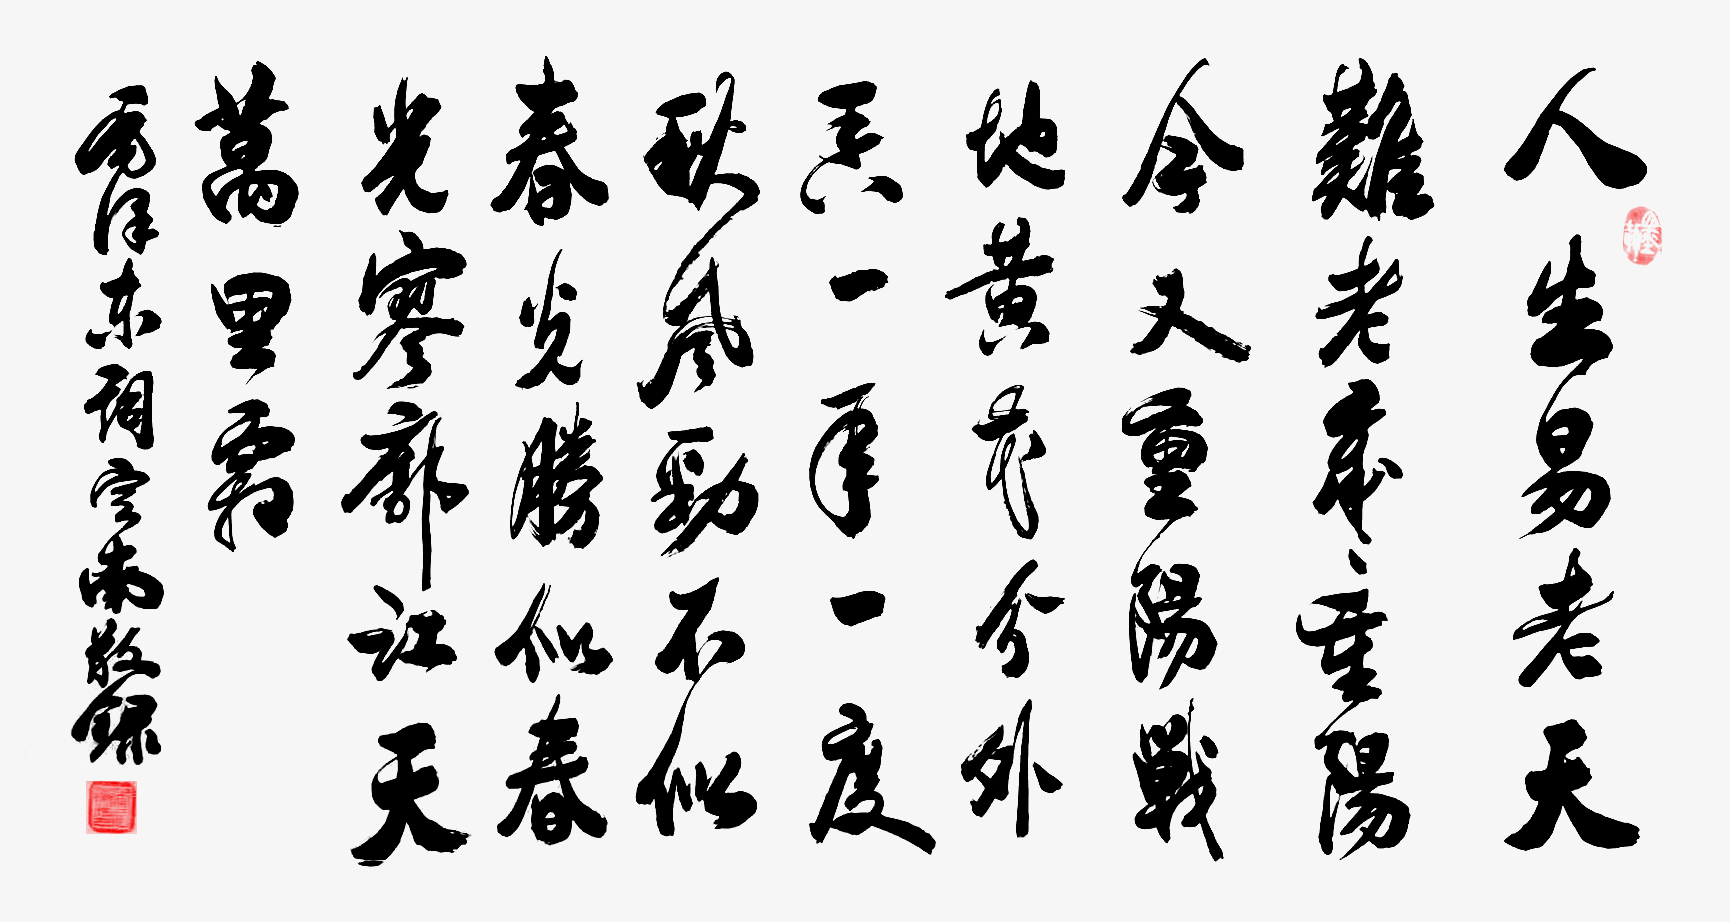 人生易老天
難老歲々重陽
今又重陽戰
地黃花分外
香一年一度
秋風勁不似
春光勝似春
光寥廓江天
萬里霜
毛澤東詞南敬錄